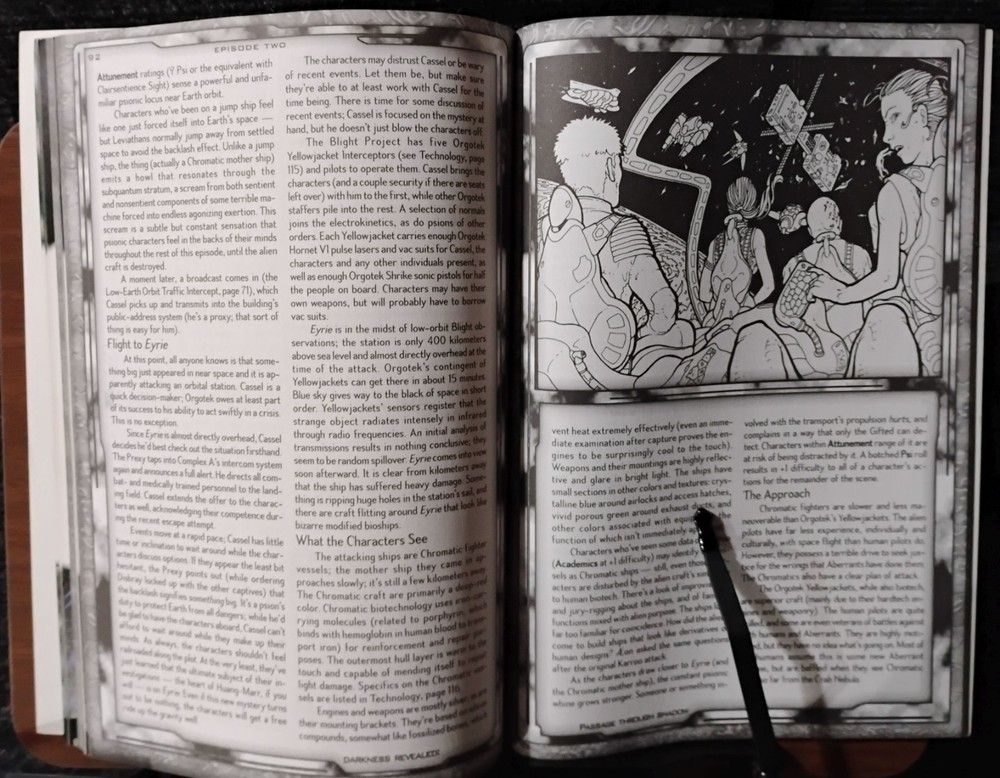 92
EPISODE TWO
Attunement ratings (9 Psi or the equivalent with
Clairsentience Sight) sense a powerful and unfa-
miliar psionic locus near Earth orbit.
Characters who've been on a jump ship feel
like one just forced itself into Earth's space —
but Leviathans normally jump away from settled
space to avoid the backlash effect. Unlike a jump
ship, the thing (actually a Chromatic mother ship)
emits a howl that resonates through the
subquantum stratum, a scream from both sentient
and nonsentient components of some terrible ma-
chine forced into endless agonizing exertion. This
scream is a subtle but constant sensation that
psionic characters feel in the backs of their minds
throughout the rest of this episode, until the alien
craft is destroyed.
A moment later, a broadcast comes in (the
Low-Earth Orbit Traffic Intercept, page 71), which
Cassel picks up and transmits into the building's
public-address system (he's a proxy; that sort of
thing is easy for him).
Flight to Eyrie
At this point, all anyone knows is that some-
thing big just appeared in near space and it is ap-
parently attacking an orbital station. Cassel is a
quick decision-maker; Orgotek owes at least part
of its success to his ability to act swiftly in a crisis.
This is no exception.
Since Eyrie is almost directly overhead, Cassel
decides he'd best check out the situation firsthand.
The Proxy taps into Complex A's intercom system
again and announces a full alert. He directs all com-
bat- and medically trained personnel to the land-
ing field. Cassel extends the offer to the charac-
ters as well, acknowledging their competence dur-
ing the recent escape attempt.
Events move at a rapid pace; Cassel has little
time or inclination to wait around while the char-
acters discuss options. If they appear the least bit
hesitant, the Proxy points out (while ordering
Disbray locked up with the other captives) that
the backlash signifies something big. It's a psion's
duty to protect Earth from all dangers; while he'd
be glad to have the characters aboard, Cassel can't
afford to wait around while they make up their
minds. As always, the characters shouldn't feel
railroaded along the plot. At the very least, they've
just learned that the ultimate subject of their in-
vestigations — the heart of Huang-Marr, if you
will — is on Eyrie. Even if this new mystery turns
out to be nothing, the characters will get a free
ride up the gravity well.
The characters may distrust Cassel or be wary
of recent events. Let them be, but make sure
they're able to at least work with Cassel for the
time being. There is time for some discussion of
recent events; Cassel is focused on the mystery at
hand, but he doesn't just blow the characters off.
The Blight Project has five Orgotek
Yellowjacket Interceptors (see Technology, page
115) and pilots to operate them. Cassel brings the
characters (and a couple security if there are seats
left over) with him to the first, while other Orgotek
staffers pile into the rest. A selection of normals
joins the electrokinetics, as do psions of other
orders. Each Yellowjacket carries enough Orgotek
Hornet VI pulse lasers and vac suits for Cassel, the
characters and any other individuals present, as
well as enough Orgotek Shrike sonic pistols for half
the people on board. Characters may have their
own weapons, but will probably have to borrow
vac suits.
Eyrie is in the midst of low-orbit Blight ob-
servations; the station is only 400 kilometers
above sea level and almost directly overhead at the
time of the attack. Orgotek's contingent of
Yellowjackets can get there in about 15 minutes.
Blue sky gives way to the black of space in short
order. Yellowjackets' sensors register that the
strange object radiates intensely in infrared
through radio frequencies. An initial analysis of
transmissions results in nothing conclusive; they
seem to be random spillover. Eyrie comes into view
soon afterward. It is clear from kilometers away
that the ship has suffered heavy damage. Some-
thing is ripping huge holes in the station's sail, and
there are craft flitting around Eyrie that look like
bizarre modified bioships.
What the Characters See
The attacking ships are Chromatic fighter
vessels; the mother ship they came in ap-
proaches slowly; it's still a few kilometers away.
The Chromatic craft are primarily a deep-red
color. Chromatic biotechnology uses iron-car-
rying molecules (related to porphyrin, which
binds with hemoglobin in human blood to trans-
port iron) for reinforcement and repair pur-
poses. The outermost hull layer is warm to the
touch and capable of mending itself to repair
light damage. Specifics on the Chromatic ves-
sels are listed in Technology, page 116.
Engines and weapons are mostly silver as are
their mounting brackets. They're based on silicon
compounds, somewhat like fossilized bones, which
DARKNESS REVEALED
vent heat extremely effectively (even an imme-
diate examination after capture proves the en-
gines to be surprisingly cool to the touch).
Weapons and their mountings are highly reflec-
tive and glare in bright light. The ships have
small sections in other colors and textures: crys-
talline blue around airlocks and access hatches,
vivid porous green around exhaust ducts, and
other colors associated with
function of which isn't immediately
Characters who've seen some data
(Academics at +1 difficulty) may identify
sels as Chromatic ships — still, even those
acters are disturbed by the alien craft's
to human biotech. There's a look of
and jury-rigging about the ships, and of
functions mixed with alien purpose. The ships
far too familiar for coincidence. How did the
come to build ships that look like derivatives
human designs? Æon asked the same questions
after the original Karroo attack.
As the characters draw closer to Eyrie (and
the Chromatic mother ship), the constant psionic
whine grows stronger. Someone or something in-
volved with the transport's propulsion hurts, and
complains in a way that only the Gifted can de-
tect. Characters within Attunement range of it are
at risk of being distracted by it. A botched Psi roll
results in +1 difficulty to all of a character's ac-
tions for the remainder of the scene.
The Approach
Chromatic fighters are slower and less ma-
neuverable than Orgotek's Yellowjackets. The alien
pilots have far less experience, individually and
culturally, with space flight than human pilots do.
However, they possess a terrible drive to seek jus-
tice for the wrongs that Aberrants have done them.
The Chromatics also have a clear plan of attack.
The Orgotek Yellowjackets, while also biotech,
are superior craft (mainly due to their hardtech sen-
and weaponry). The human pilots are quite
and some are even veterans of battles against
humans and Aberrants. They are highly moti-
but they have no idea what's going on. Most of
humans assume this is some new Aberrant
but are baffled when they see Chromatic
so far from the Crab Nebula.
PASSAGE THROUGH SHADOW